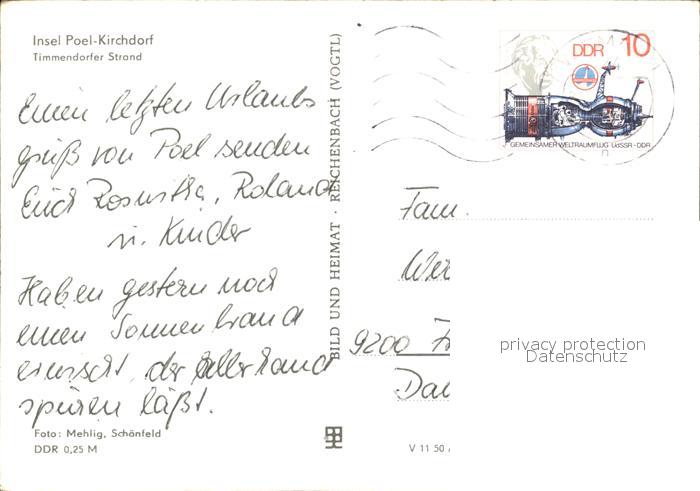 Insel Poel-Kirchdorf
Timmendorfer Strand
Einen letzten Urlaubs
gruß von Poel senden
Euch Roswitha, Roland
u. Kinder
Haben gestern noch
einen Sonnenbrand
erwischt, der allerhand
spüren läßt.
Foto: Mehlig, Schönfeld
DDR 0,25 M
BILD UND HEIMAT · REICHENBACH (VOGTL)
DDR 10
GEMEINSAMER WELTRAUMFLUG UdSSR-DDR
Fam.
9200
V 11 50
privacy protection
Datenschutz